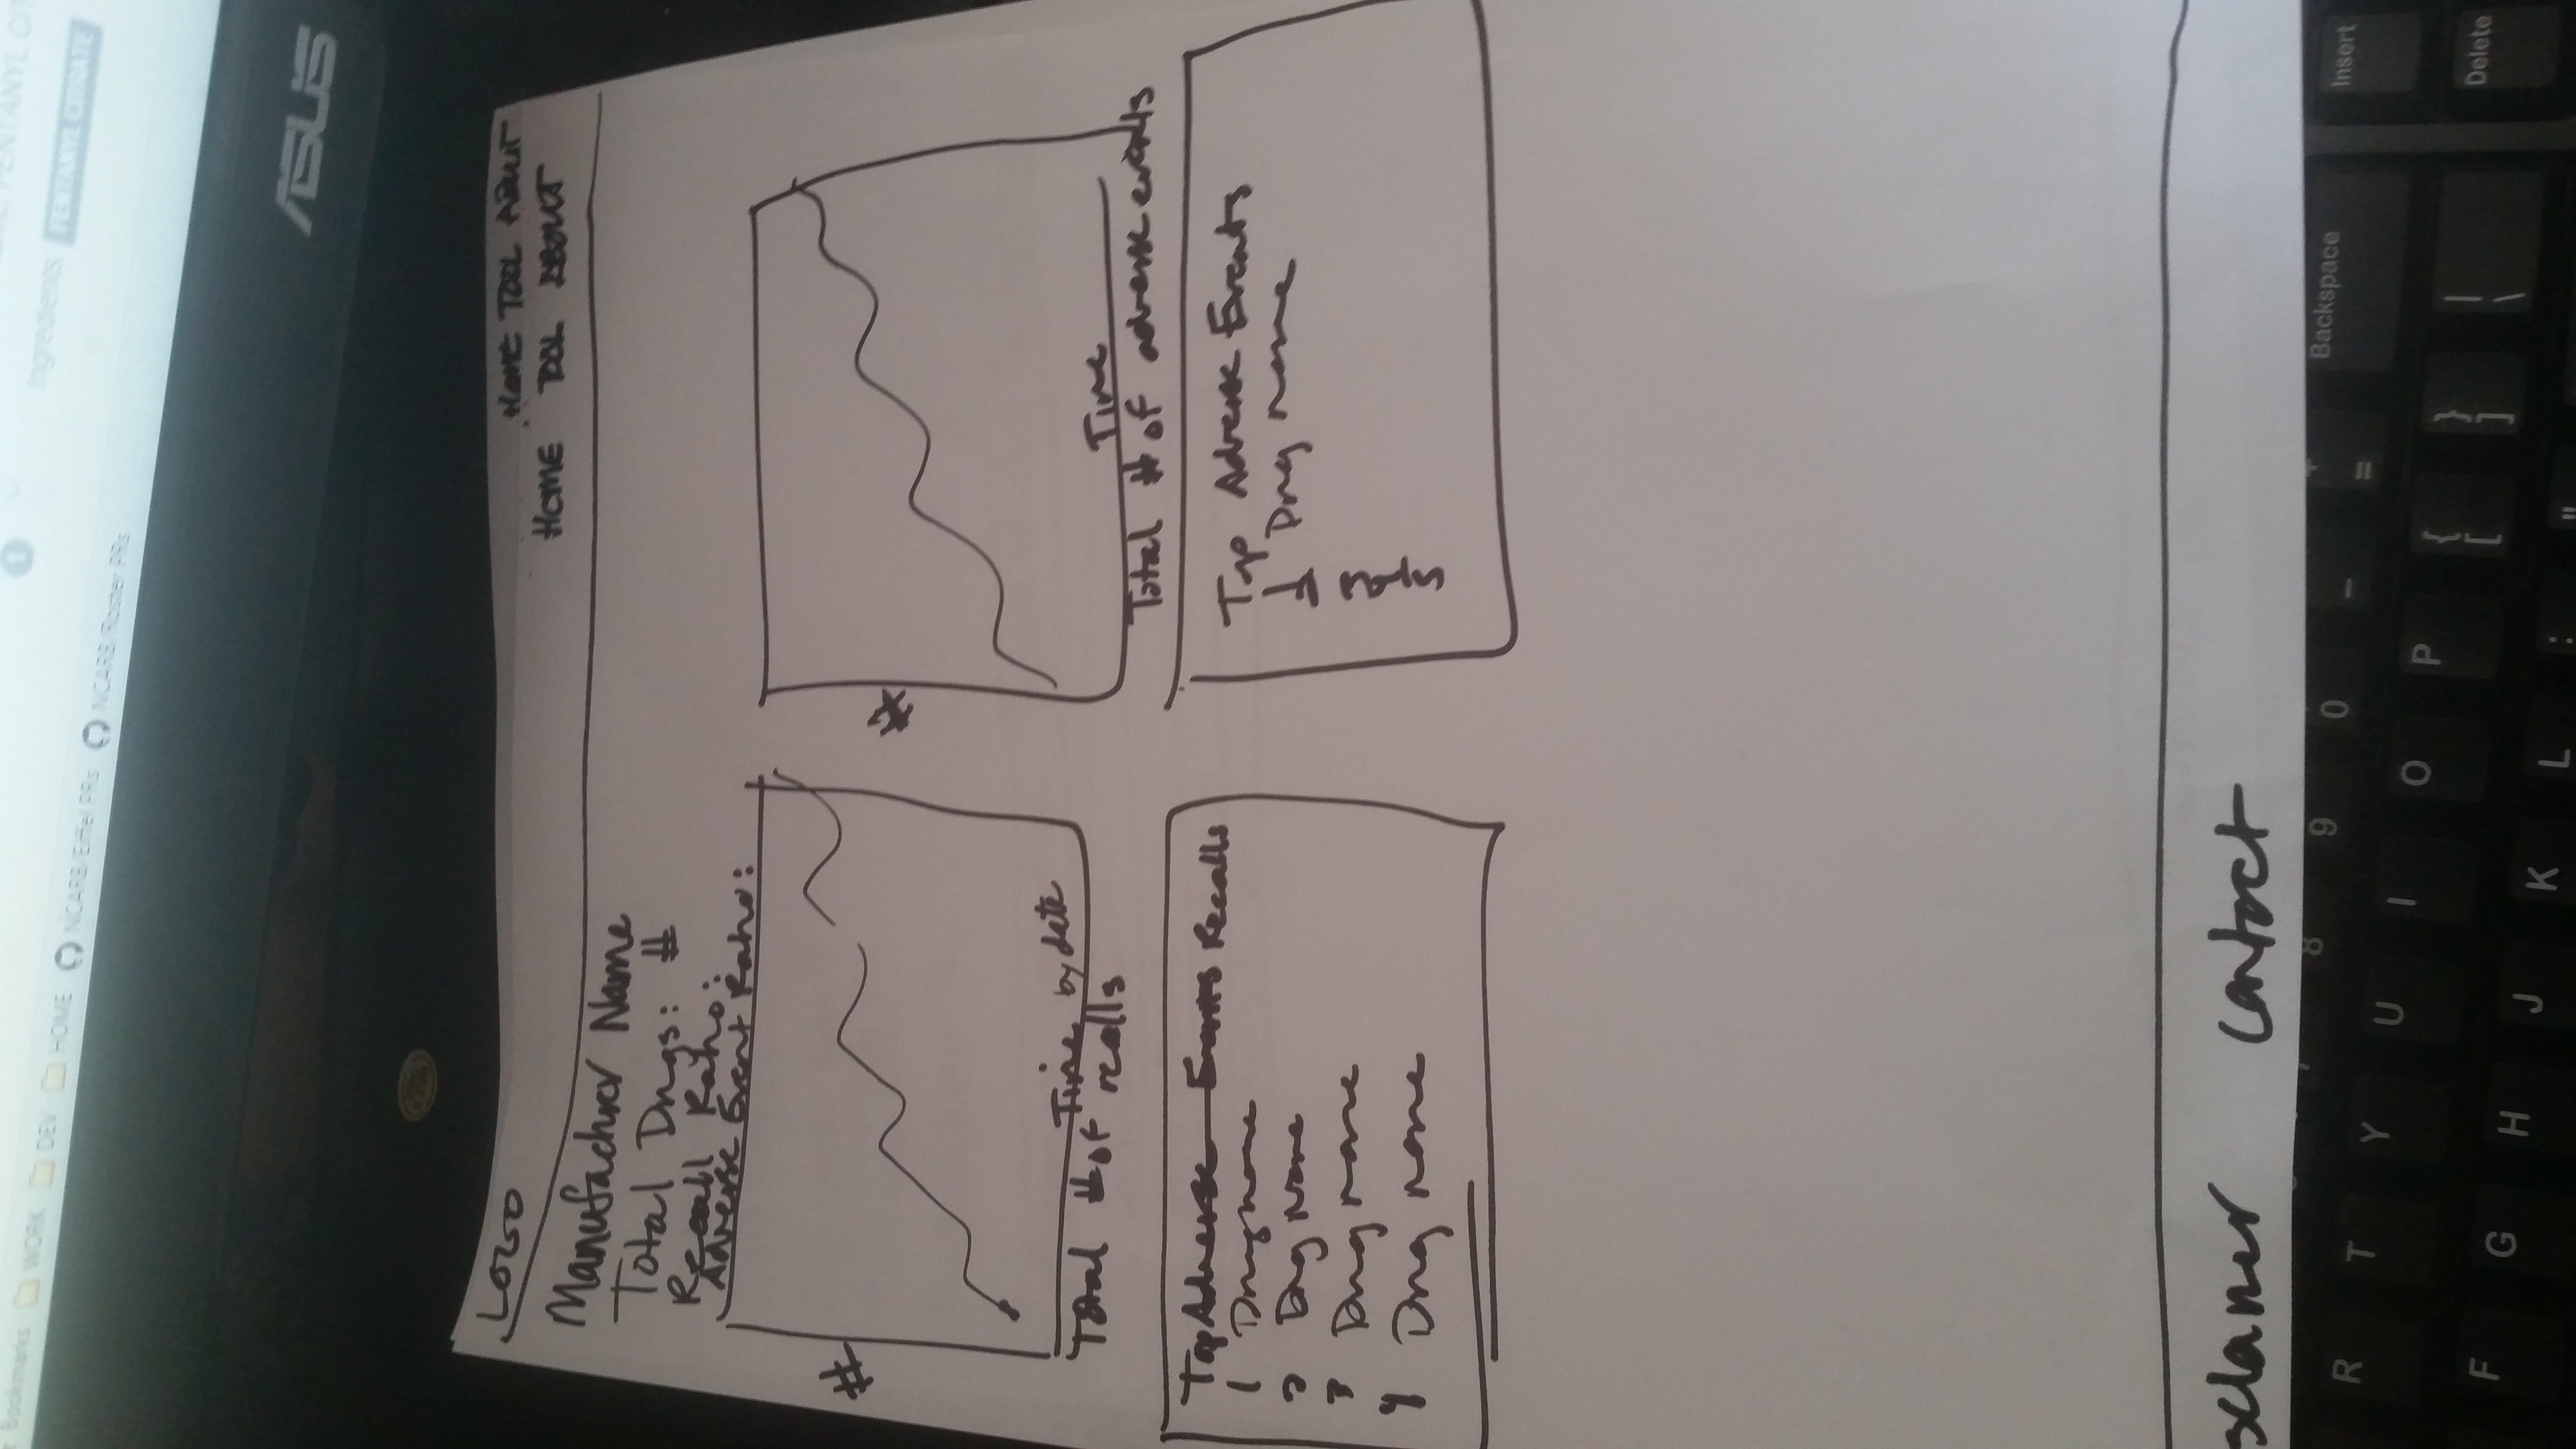 Bookmarks WORK DEV HOME NCARB/Eiffel PRs NCARB/Roster PRs
1
FENTANYL CIT
Ingredients FENTANYL CITRATE
ASUS
LOGO
HOME TOOL ABOUT
HOME TOOL ABOUT
Manufacturer Name
Total Drugs: #
Recall Ratio:
Adverse Event Ratio:
#
Time by date
Total # of recalls
#
Time
Total # of adverse events
Top Adverse Events Recalls
1 Drug name
2 Drug Name
3 Drug name
4 Drug name
Top Adverse Events
1 Drug name
2
3
4
5
sclaimer contact
7 8 9 0 - + = Backspace Insert
R T Y U I O P { [ } ] | \ Delete
F G H J K L : "